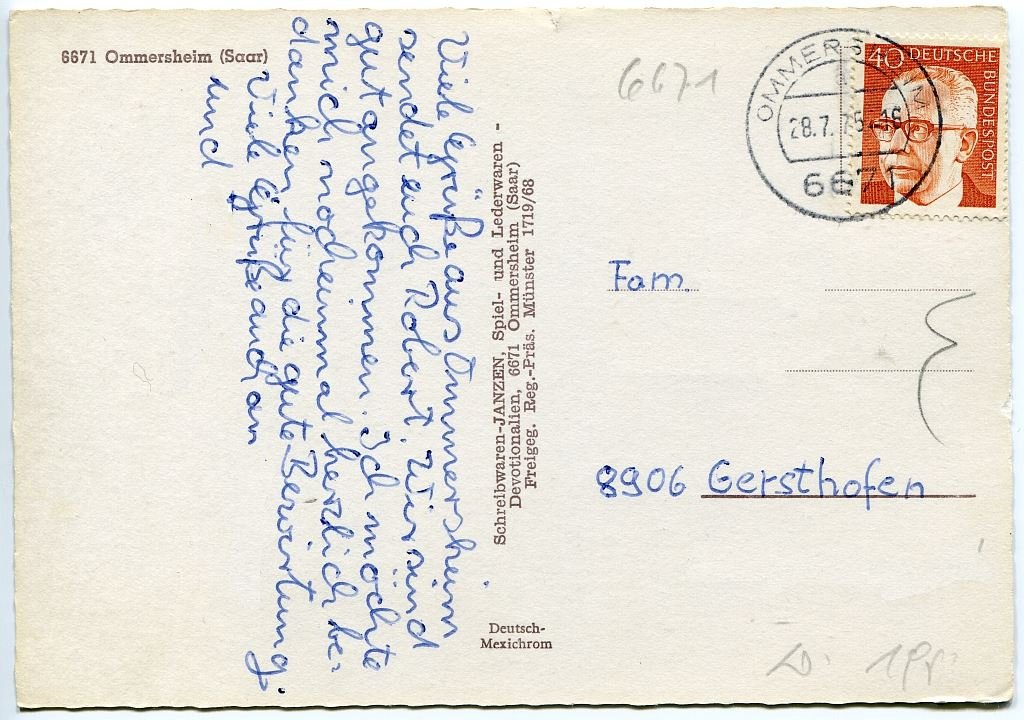 6671 Ommersheim (Saar)
Viele Grüße aus Ommersheim
sendet euch Robert. Wir sind
gut angekommen. Ich möchte
mich nocheinmal herzlich be-
danken für die gute Bewirtung.
Viele Grüße auch an
und
Schreibwaren-JANZEN, Spiel- und Lederwaren -
Devotionalien, 6671 Ommersheim (Saar)
Freigeg. Reg.-Präs. Münster 1719/68
Deutsch-
Mexichrom
6671
OMMERS M
28.7.75-16
6671
40 DEUTSCHE
BUNDESPOST
Fam.
8906 Gersthofen